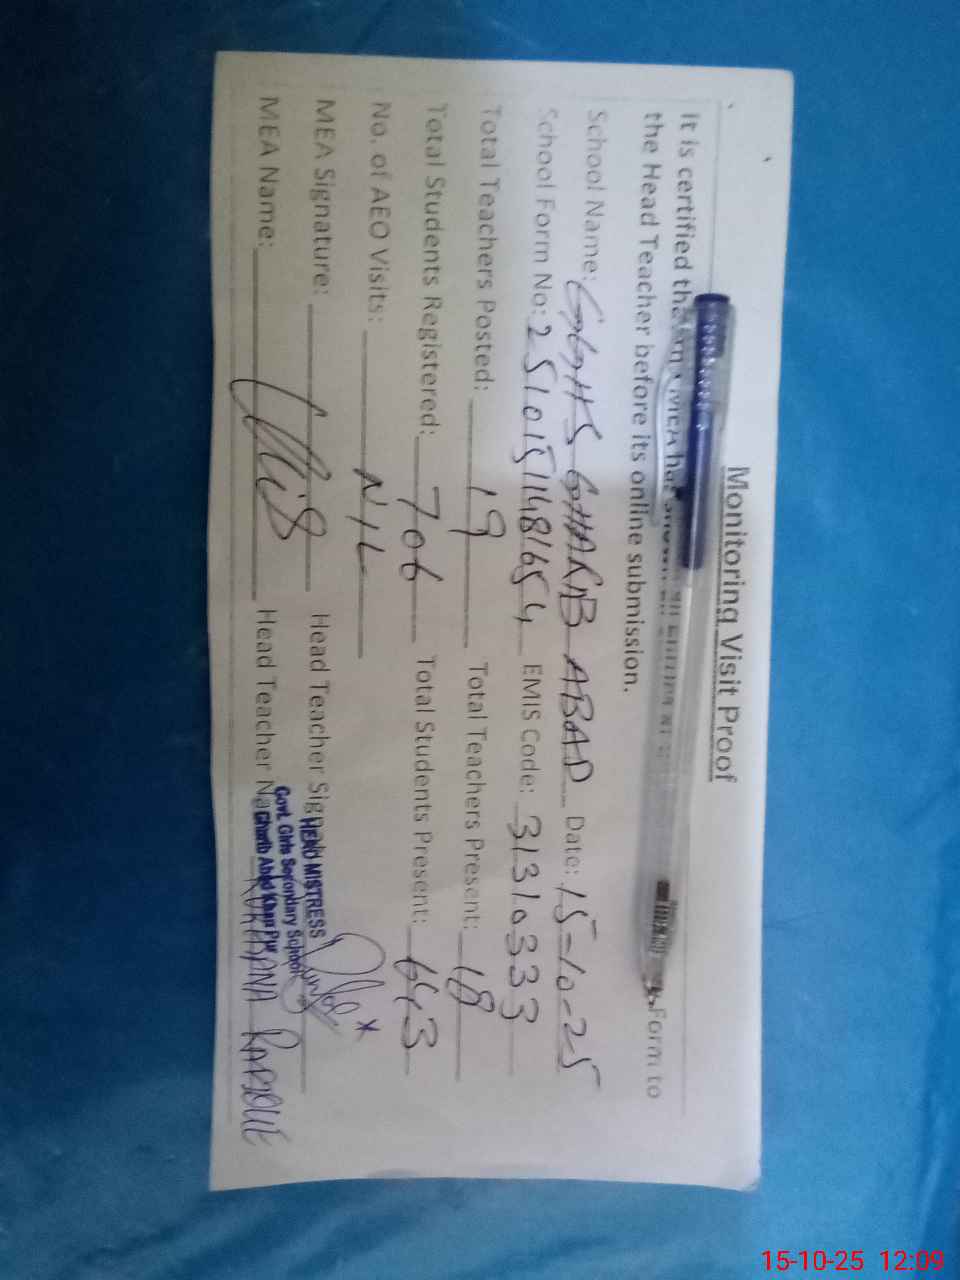 Monitoring Visit Proof
It is certified that Form to
the Head Teacher before its online submission.
School Name: GGHS GHARIB ABAD Date: 15-10-25
School Form No: 25101511481654 EMIS Code: 31310333
Total Teachers Posted: 19 Total Teachers Present: 18
Total Students Registered: 706 Total Students Present: 643
No. of AEO Visits: NIL
MEA Signature: Head Teacher
MEA Name: Head Teacher
HEAD MISTRESS
Govt. Girls Secondary School
Gharib Abad Khan Pur
15-10-25 12:09